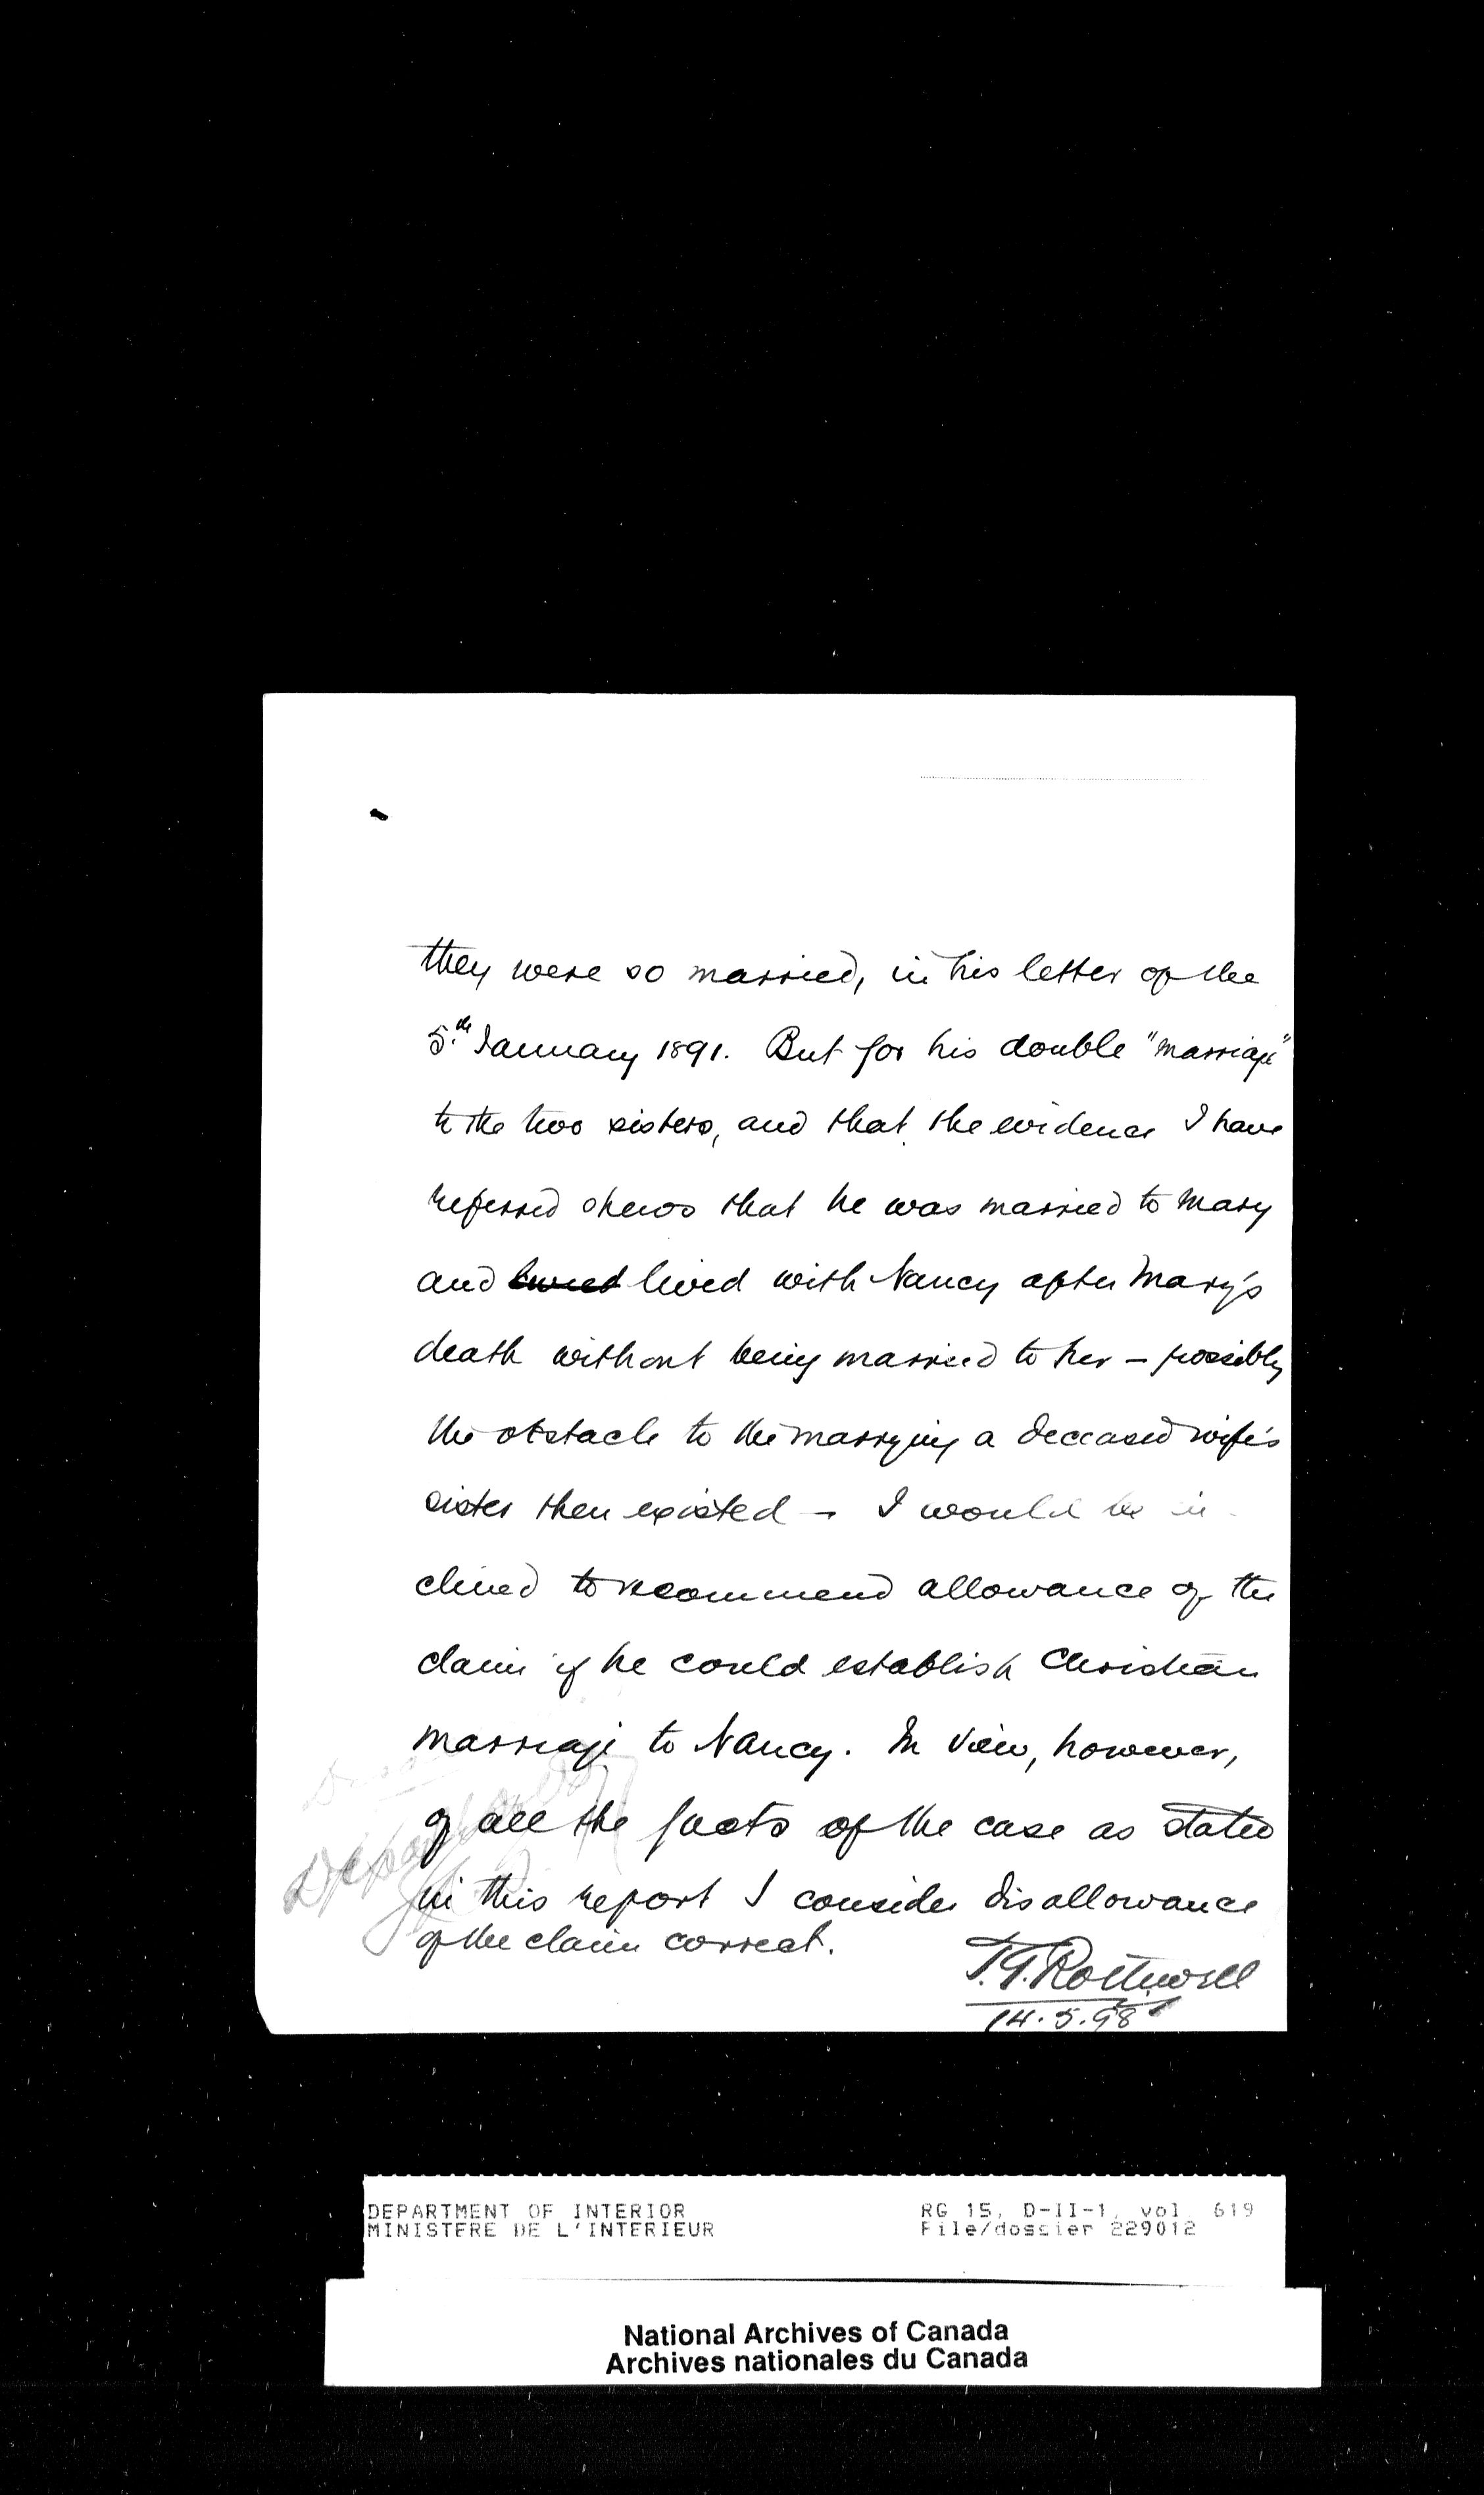 they were so married, in his letter of the
5.th January 1891. But for his double "marriage"
to the two sisters, and that the evidence I have
referred shews that he was married to Mary
and lived with Nancy after Mary's
death without being married to her – possibly
the obstacle to the marrying a deceased wife's
sister then existed – I would be in
clined to recommend allowance of the
claim if he could establish Christian
marriage to Nancy. In view, however,
of all the facts of the case as stated
in this report I consider disallowance
of the claim correct.
T.G. Rothwell
14.5.98
DEPARTMENT OF INTERIOR RG 15, D-II-1, vol 619
MINISTERE DE L'INTERIEUR File/dossier 229012
National Archives of Canada
Archives nationales du Canada